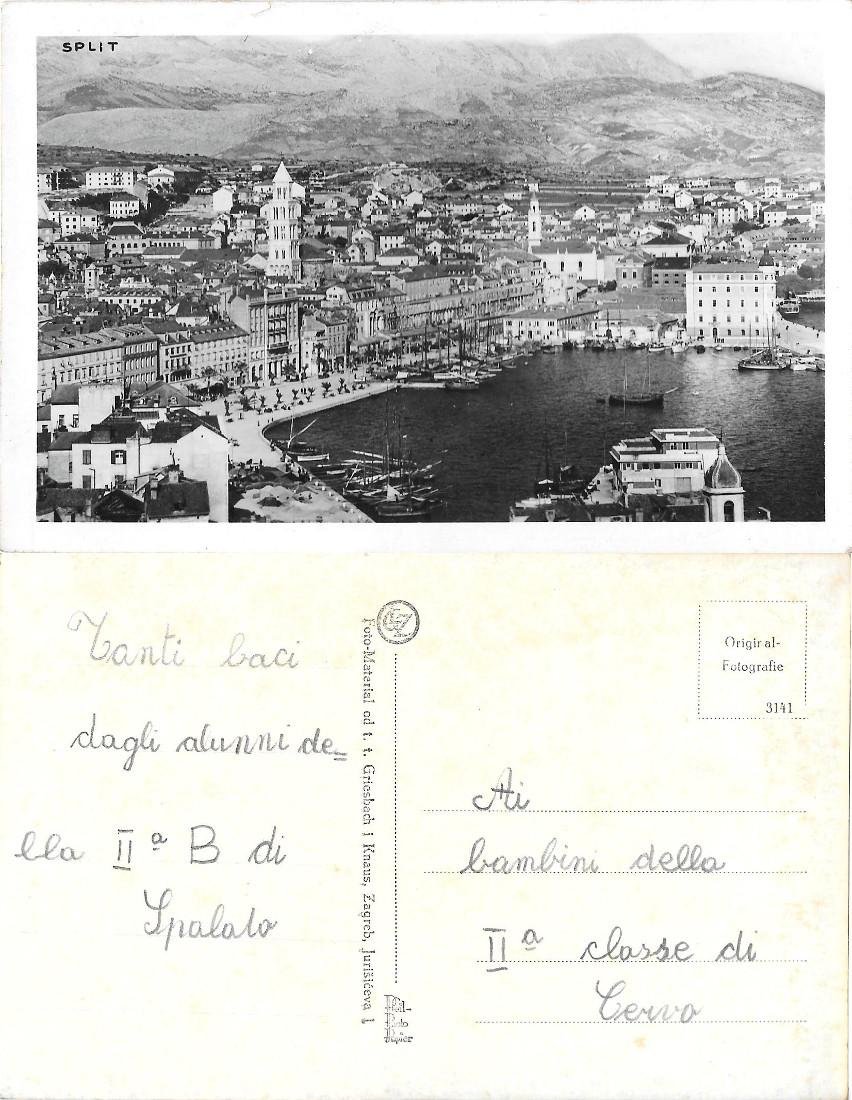 SPLIT
Tanti baci
dagli alunni de=
lla II a B di
Spalato
Foto-Material od t. t. Griesbach i Knaus, Zagreb, Jurišićeva 1
Original-
Fotografie
3141
Ai
bambini della
II a classe di
Cervo